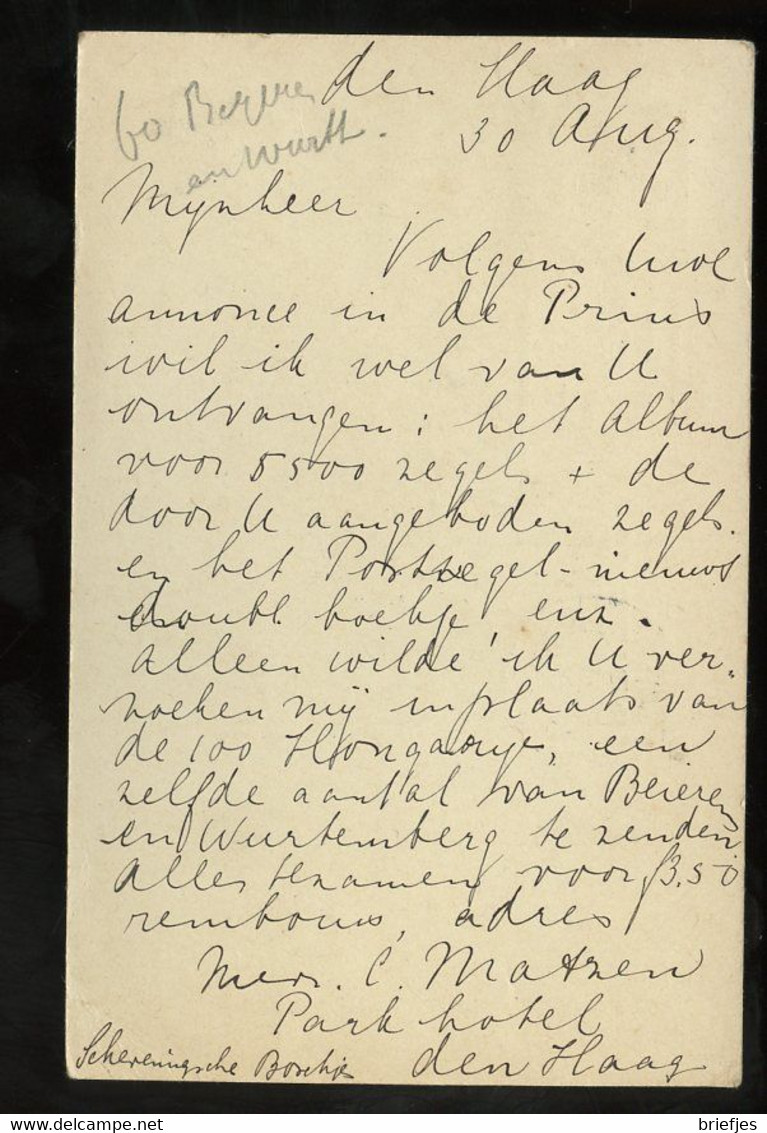 den Haag
30 Aug.
60 Beyeren
en Wurtt.
Mynheer
Volgens Uwe
annonce in de Prins
wil ik wel van U
ontvangen: het Album
voor 5500 zegels + de
door U aangeboden zegels.
en het Postzegel-nieuws
doubl. boekje, enz.
alleen wilde ik U ver-
zoeken mij in plaats van
de 100 Hongarije, een
zelfde aantal van Beieren
en Wurtemberg te zenden
alles tezamen voor f3.50
rembours, adres
Mevr. C. Matzen
Park hotel
Scheveningsche Boschjes den Haag
briefjes